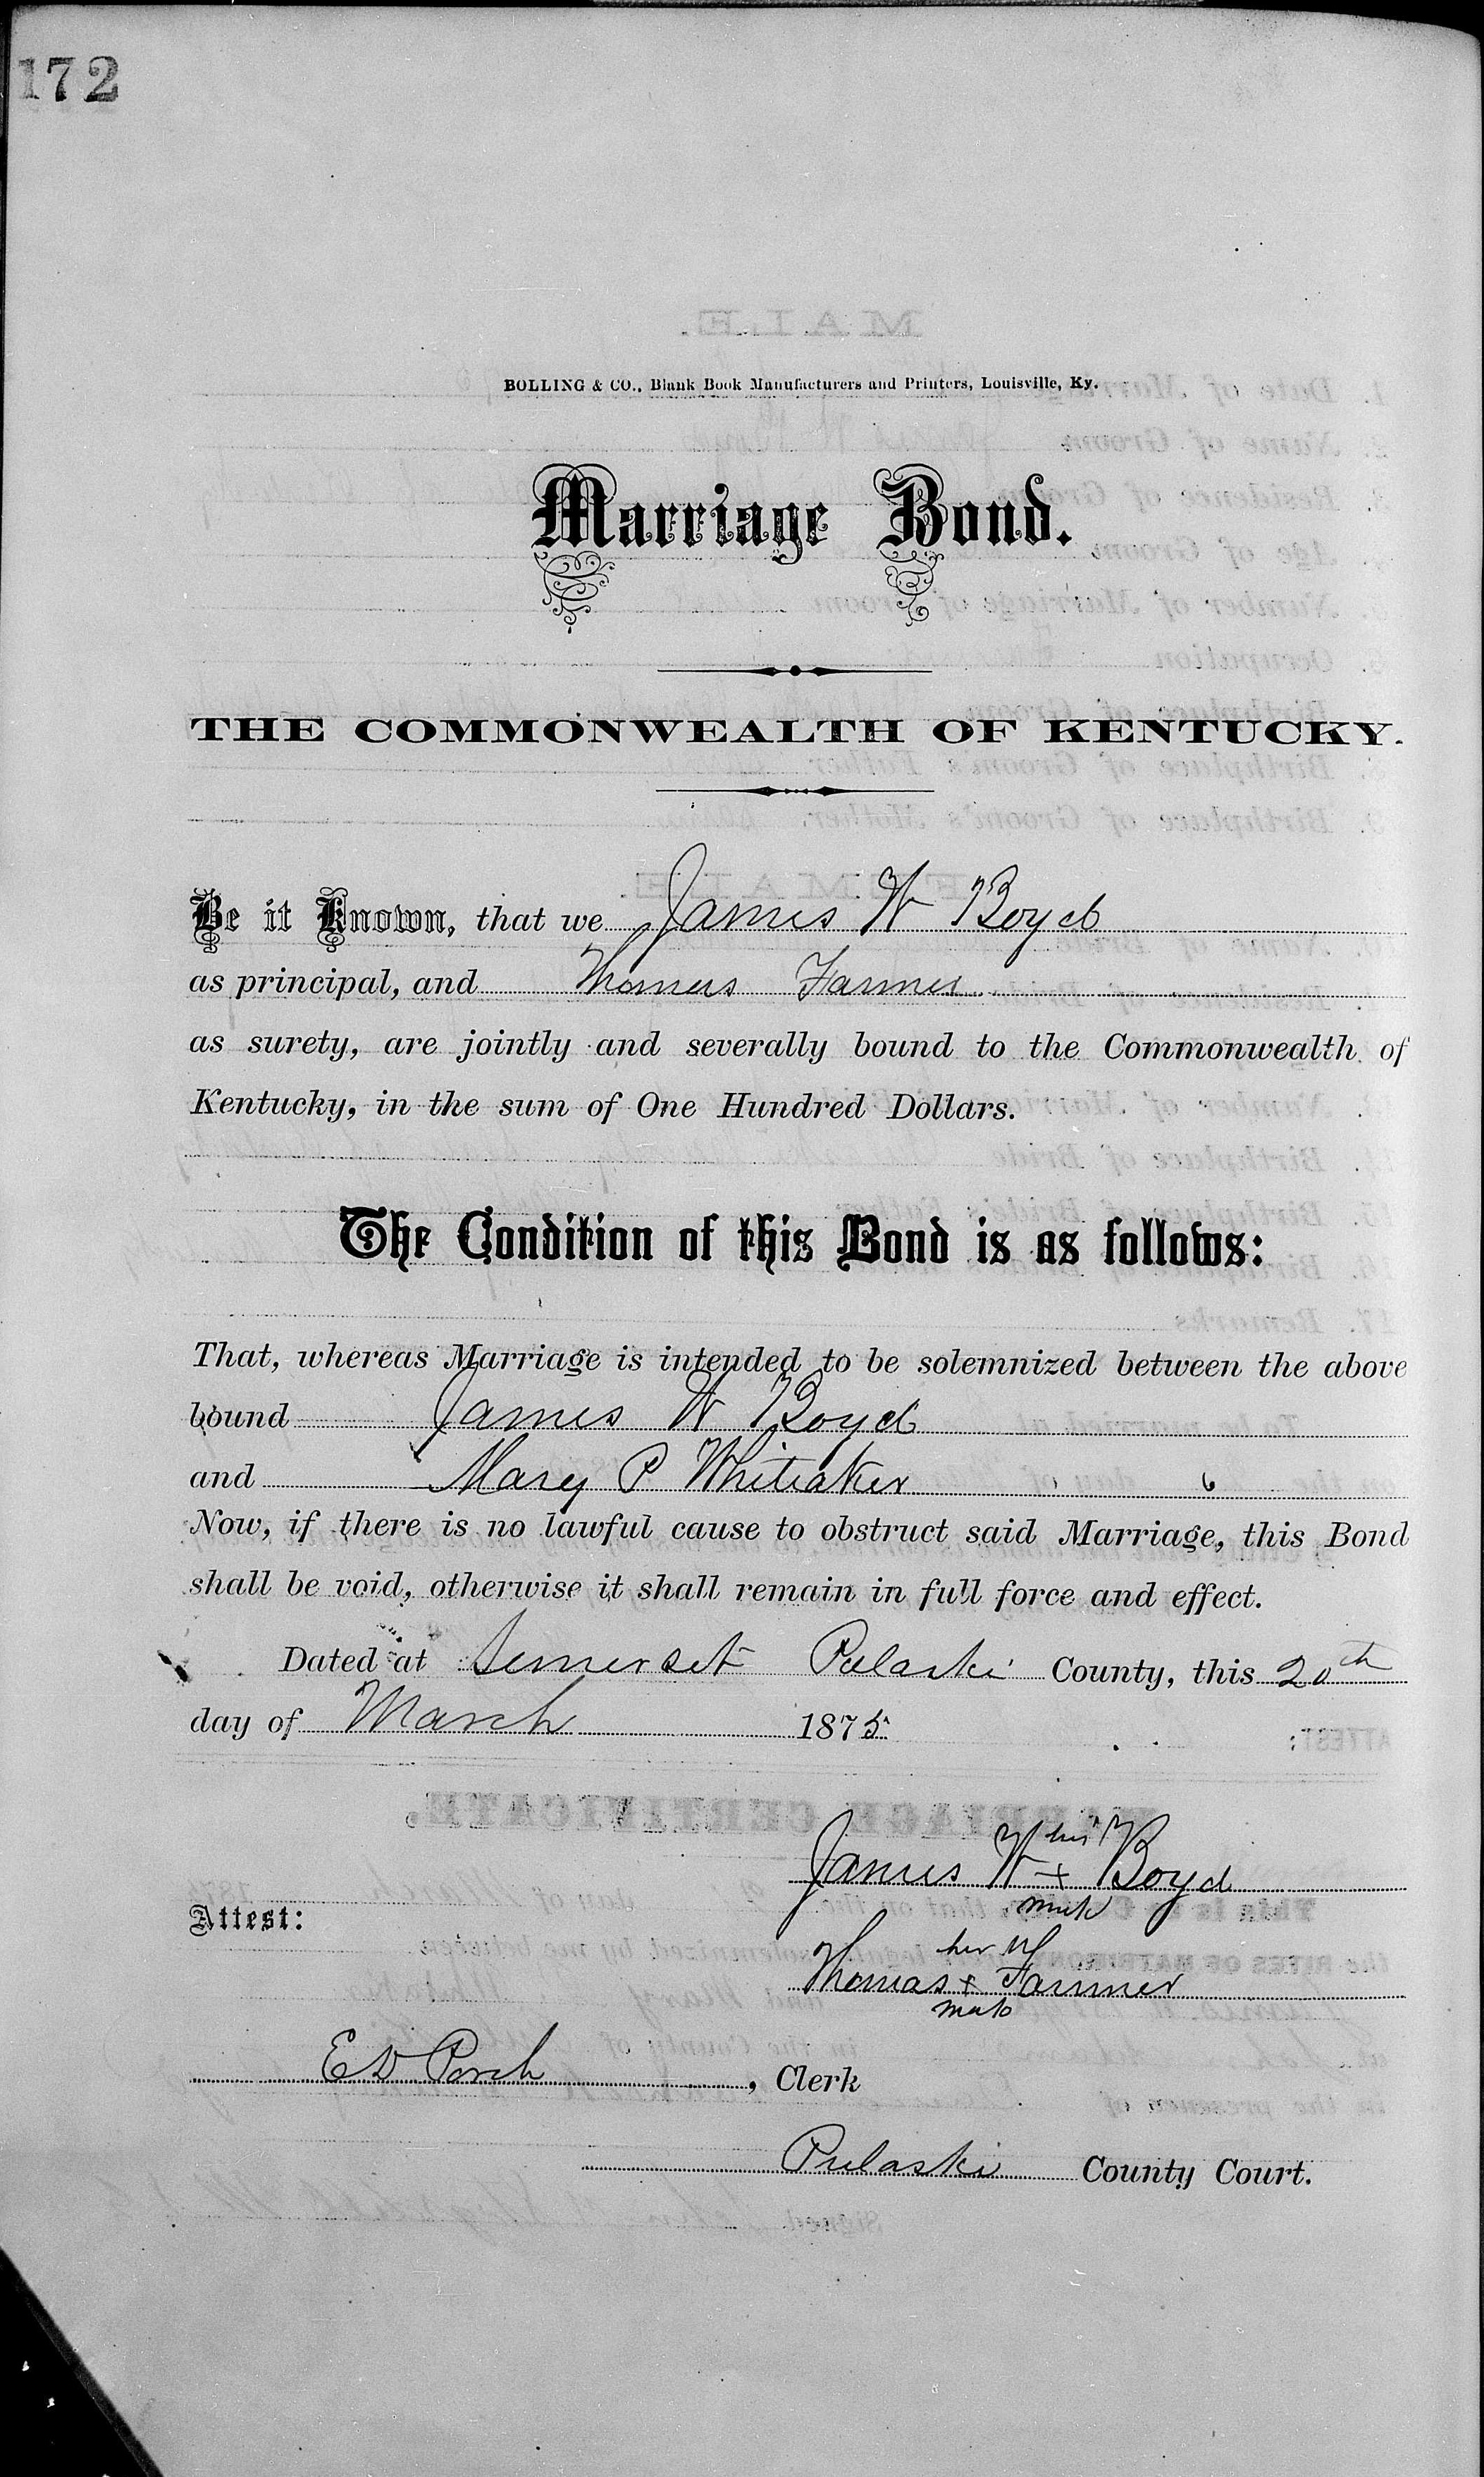 172
BOLLING & CO., Blank Book Manufacturers and Printers, Louisville, Ky.
Marriage Bond.
THE COMMONWEALTH OF KENTUCKY.
Be it Known, that we James W Boyd
as principal, and Thomas Farmer
as surety, are jointly and severally bound to the Commonwealth of
Kentucky, in the sum of One Hundred Dollars.
The Condition of this Bond is as follows:
That, whereas Marriage is intended to be solemnized between the above
bound James W Boyd
and Mary P Whitaker
Now, if there is no lawful cause to obstruct said Marriage, this Bond
shall be void, otherwise it shall remain in full force and effect.
Dated at Somerset Pulaski County, this 20th
day of March 1875
his
James W + Boyd
mark
Attest:
his
Thomas + Farmer
mark
E D Porch, Clerk
Pulaski County Court.